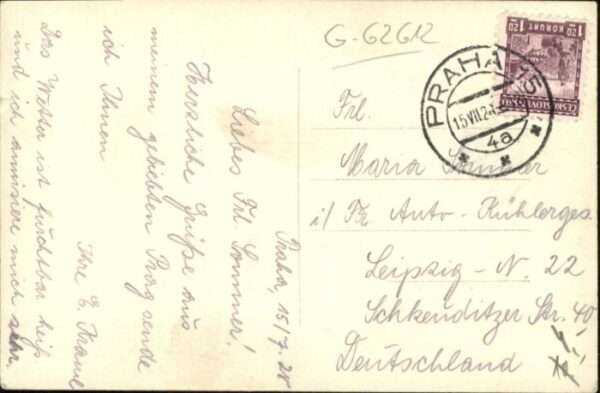 Praha, 15/7.28
Liebes Frl. Sommer!
Herzliche Grüße aus
meinem geliebten Prag sende
ich Ihnen
Ihre E.
Das Wetter ist furchtbar heiß
und ich amüsiere mich sehr.
G-62612
Frl.
Maria Sommer
i/ Fa Auto-Kühlerges
Leipzig-N. 22
Schkeuditzer Str. 40
Deutschland
PRAHA 15
15.VII.2
4a
1·20 1·20
KORUNY
ČESKOSLOVENSKO